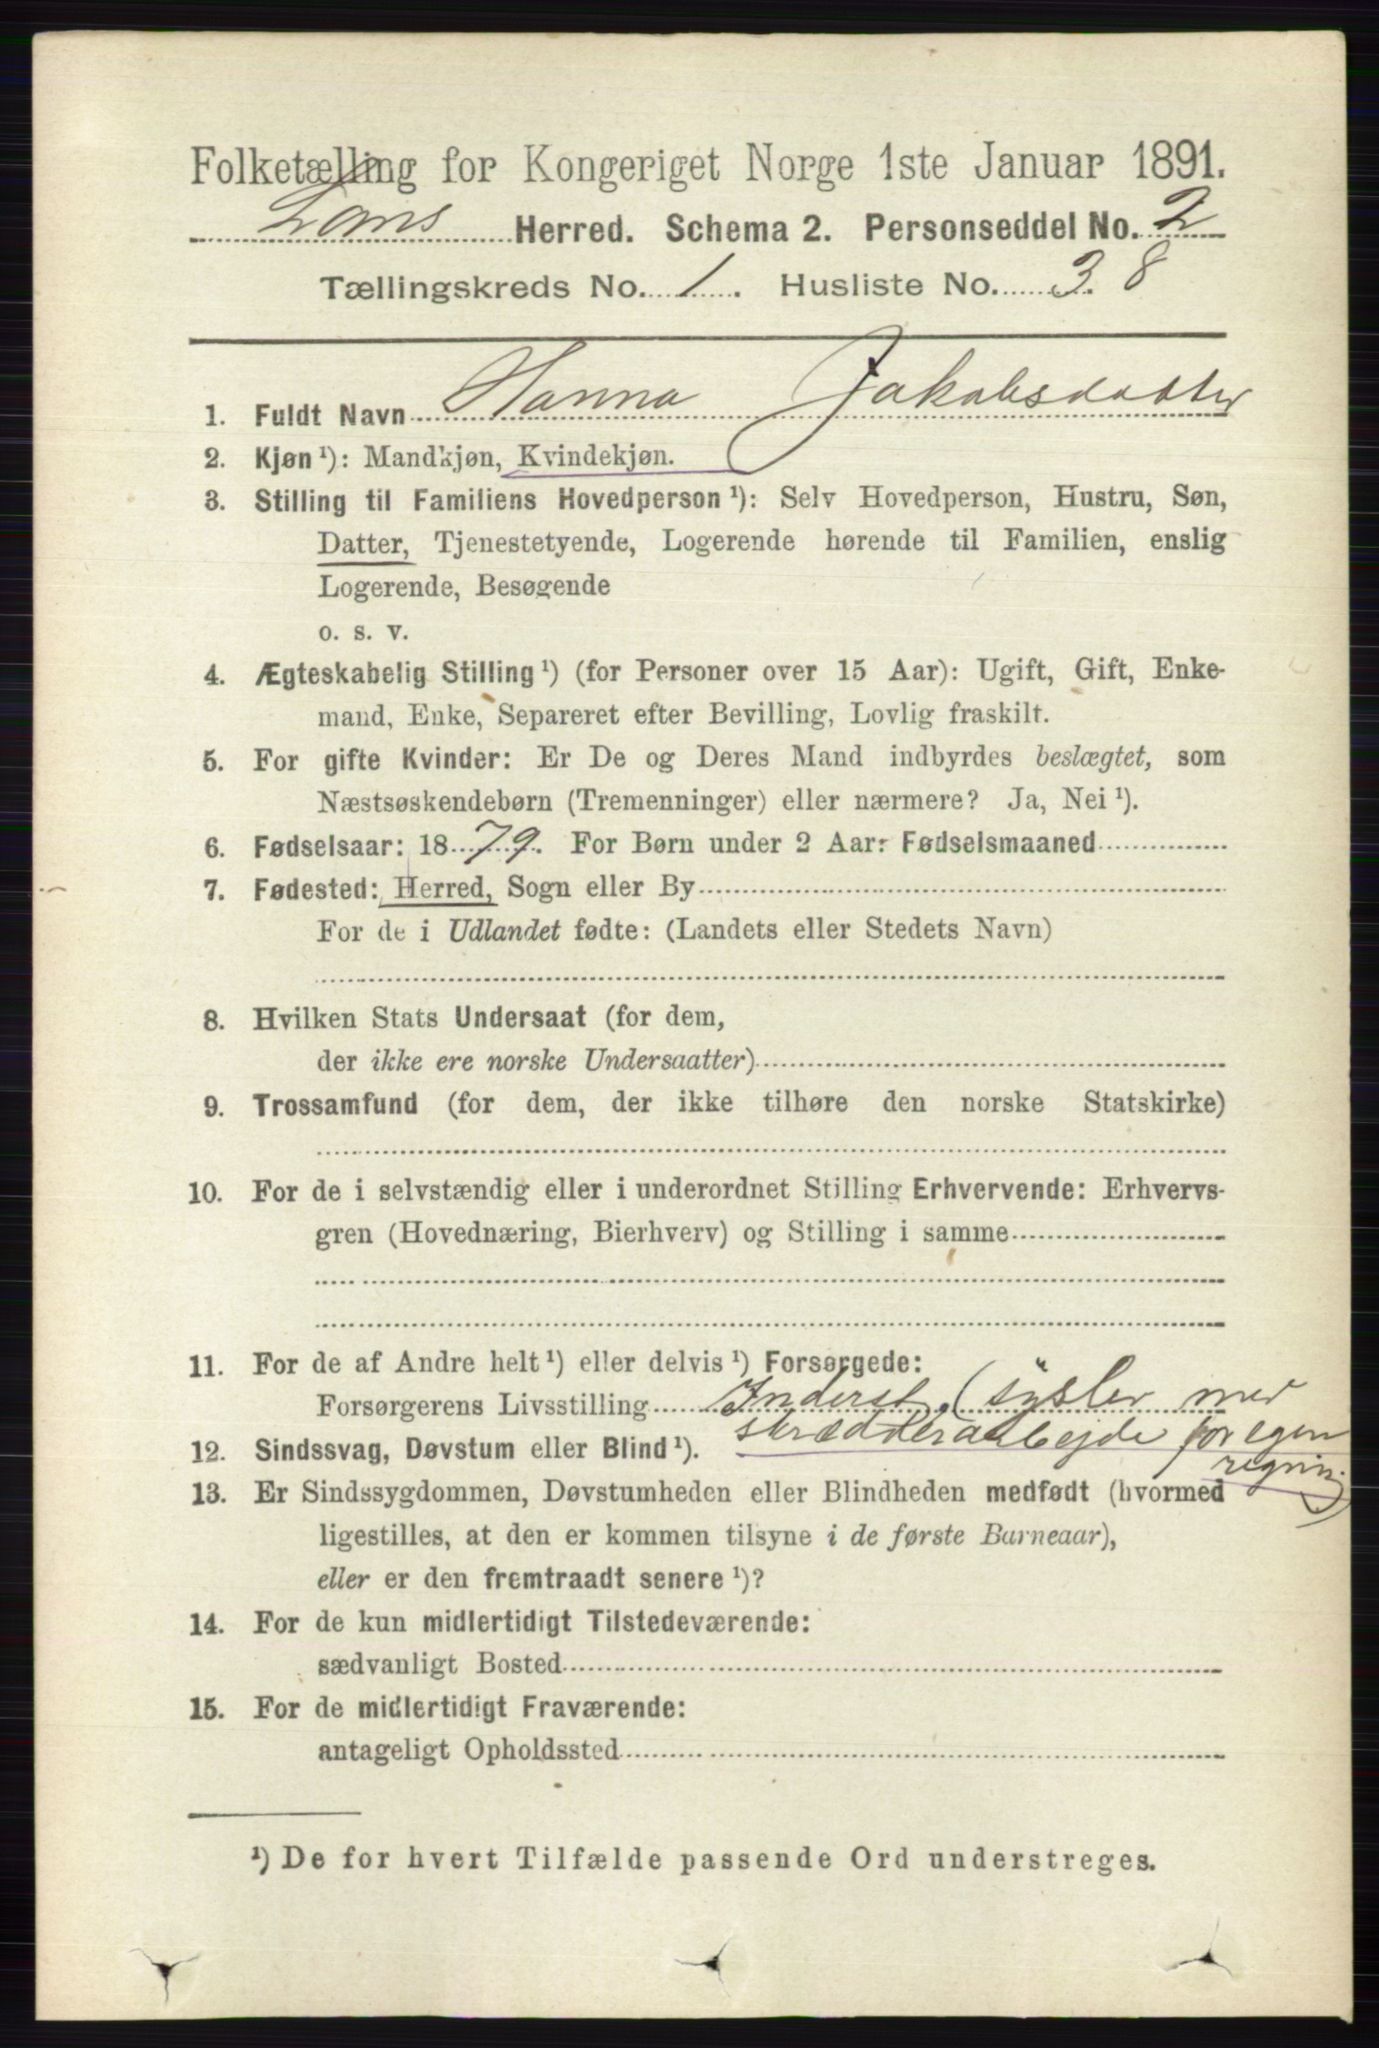 Folketælling for Kongeriget Norge 1ste Januar 1891.
Lands Herred. Schema 2. Personseddel No. 2
Tællingskreds No. 1. Husliste No. 38
1. Fuldt Navn Hanna Jakobsdatter
2. Kjøn ¹): Mandkjøn, Kvindekjøn.
3. Stilling til Familiens Hovedperson ¹): Selv Hovedperson, Hustru, Søn,
Datter, Tjenestetyende, Logerende hørende til Familien, enslig
Logerende, Besøgende
o. s. v.
4. Ægteskabelig Stilling ¹) (for Personer over 15 Aar): Ugift, Gift, Enke-
mand, Enke, Separeret efter Bevilling, Lovlig fraskilt.
5. For gifte Kvinder: Er De og Deres Mand indbyrdes beslægtet, som
Næstsøskendebørn (Tremenninger) eller nærmere? Ja, Nei ¹).
6. Fødselsaar: 1879. For Børn under 2 Aar: Fødselsmaaned
7. Fødested: Herred, Sogn eller By
For de i Udlandet fødte: (Landets eller Stedets Navn)
8. Hvilken Stats Undersaat (for dem,
der ikke ere norske Undersaatter)
9. Trossamfund (for dem, der ikke tilhøre den norske Statskirke)
10. For de i selvstændig eller i underordnet Stilling Erhvervende: Erhvervs-
gren (Hovednæring, Bierhverv) og Stilling i samme
11. For de af Andre helt ¹) eller delvis ¹) Forsørgede:
Forsørgerens Livsstilling Inderst. (sysler med
skrædderarbejde for egen
regning)
12. Sindssvag, Døvstum eller Blind ¹).
13. Er Sindssygdommen, Døvstumheden eller Blindheden medfødt (hvormed
ligestilles, at den er kommen tilsyne i de første Barneaar),
eller er den fremtraadt senere ¹)?
14. For de kun midlertidigt Tilstedeværende:
sædvanligt Bosted
15. For de midlertidigt Fraværende:
antageligt Opholdssted
¹) De for hvert Tilfælde passende Ord understreges.